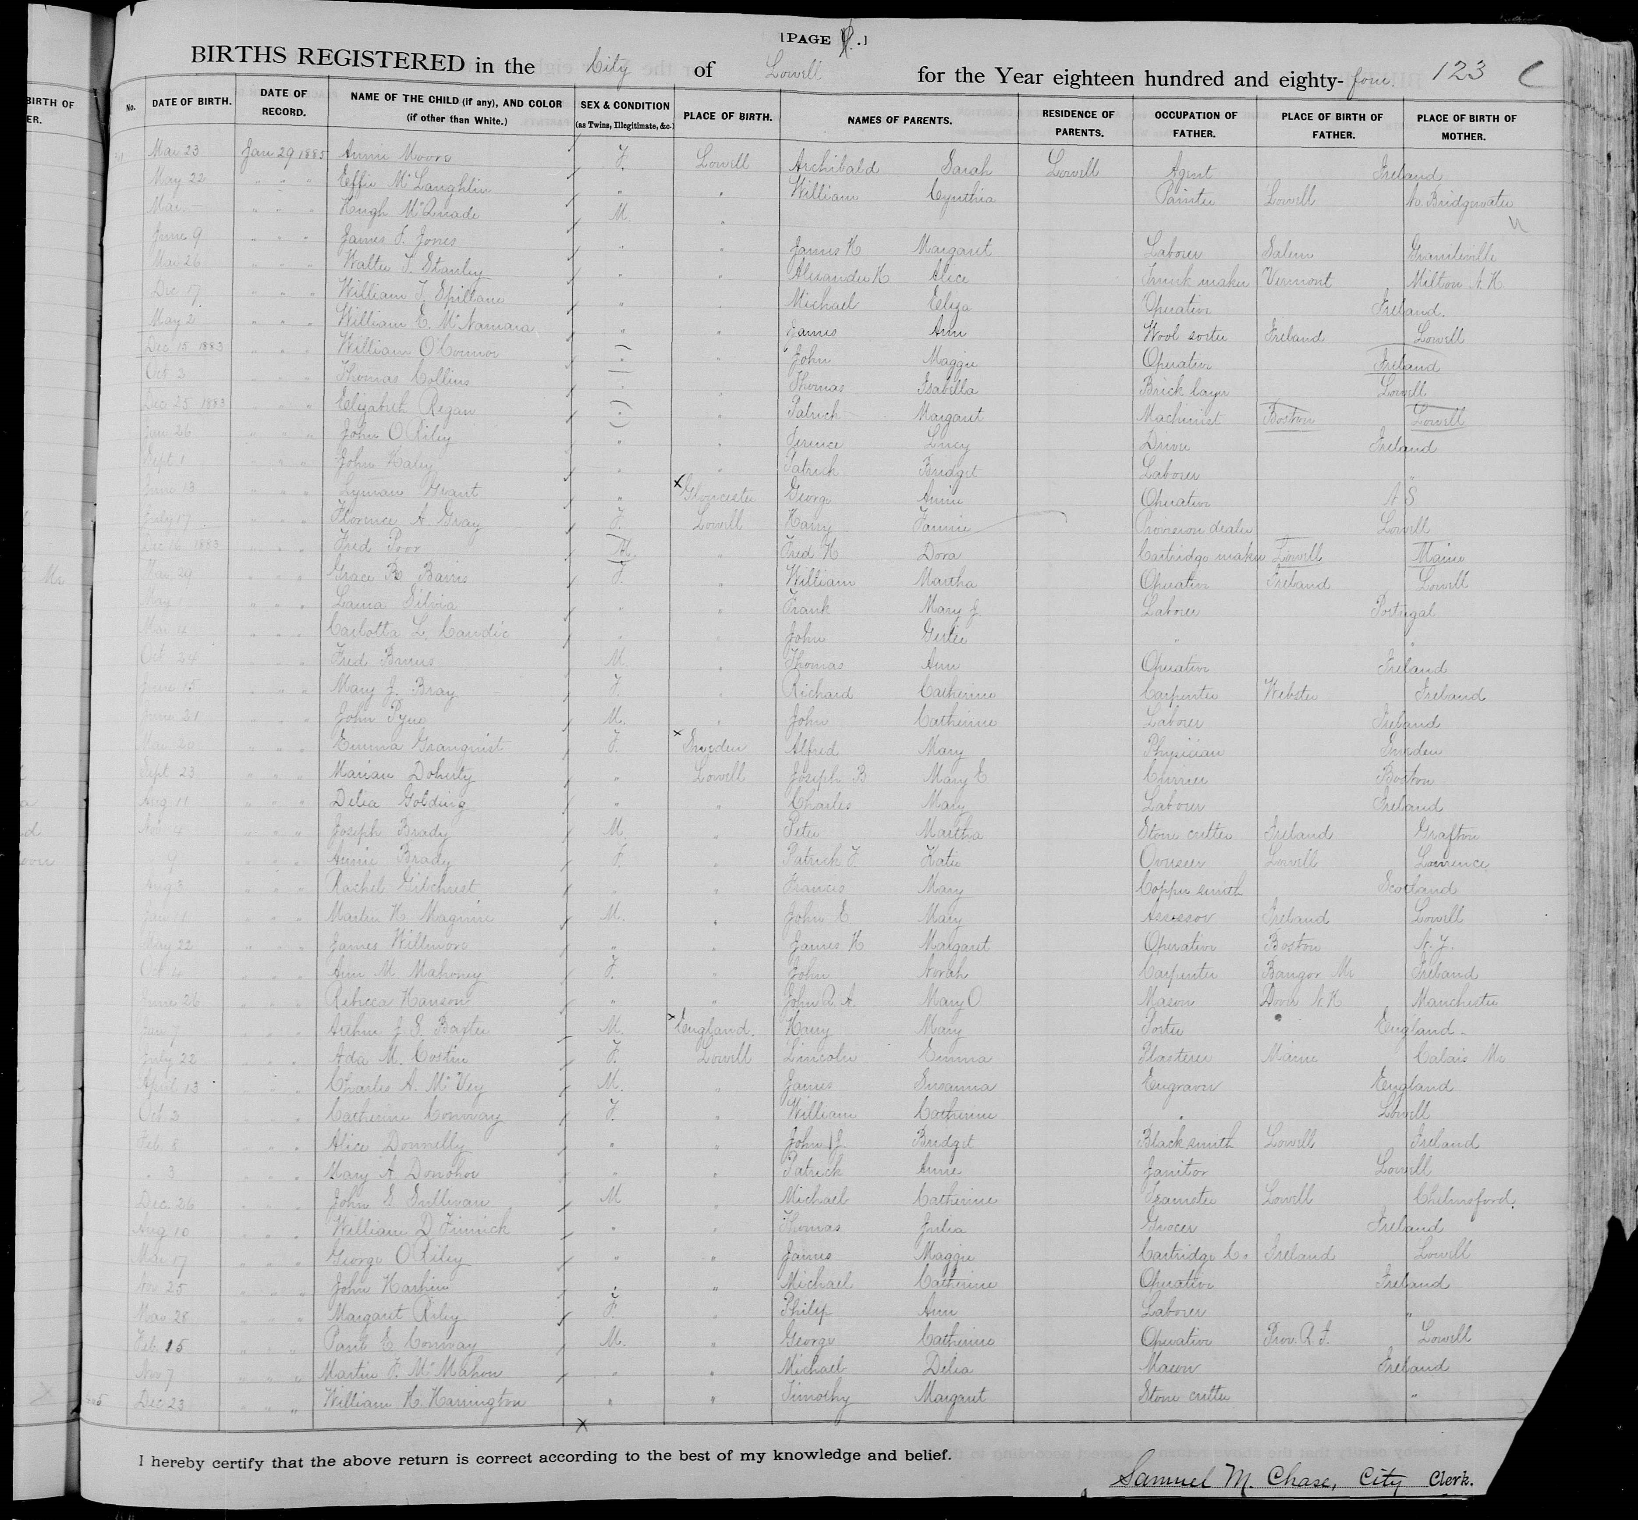 [PAGE .]
BIRTHS REGISTERED in the City of Lowell for the Year eighteen hundred and eighty-four. 123
No. DATE OF BIRTH. DATE OF RECORD. NAME OF THE CHILD (if any), AND COLOR (if other than White.) SEX & CONDITION (as Twins, Illegitimate, &c.) PLACE OF BIRTH. NAMES OF PARENTS. RESIDENCE OF PARENTS. OCCUPATION OF FATHER. PLACE OF BIRTH OF FATHER. PLACE OF BIRTH OF MOTHER.
Mar 23 Jan 29 1885 Annie Moore F. Lowell Archibald Sarah Lowell Agent Ireland
May 22 " " " Effie McLaughlin " " William Cynthia Painter Lowell No. Bridgewater
Mar " " " Hugh McQuade M. "
June 9 " " " James F. Jones " James H Margaret Laborer Salem Graniteville
Mar 26 " " " Walter F. Stanley " Alexander H Alice Trunk maker Vermont Milton N.H.
Dec 17 " " " William J. Spillane " " Michael Eliza Operative Ireland.
May 2 " " " William E. McNamara " " James Ann Wool sorter Ireland Lowell
Dec 15 1883 " " William O'Connor " " John Maggie Operative Ireland
Oct 3 " " Thomas Collins " " Thomas Isabella Brick layer Lowell
Dec 25 1883 " " " Elizabeth Regan " " Patrick Margaret Machinist Boston Lowell
Jan 26 " " " John O'Riley " " Terence Lucy Driver Ireland
Sept 1 " " " John Haley " " Patrick Bridget Laborer "
June 13 " " " Lyman Grant " x Gloucester George Annie Operative N S
July 17 " " " Florence A. Gray F. Lowell Harry Fannie Provision dealer Lowell
Dec 16 1883 " " " Fred Poor M. " Fred H Dora Cartridge maker Lowell Maine
Mar 24 " " " Grace B Bains F. " William Martha Operative Ireland Lowell
" " " Laura Silvia " " Frank Mary J. Laborer Portugal
Mar 4 " " " Carlotta L. Candic " " John Gertie " "
Oct 24 " " " Fred Burns M " Thomas Ann Operative Ireland
June 15 " " " Mary J. Bray F. " Richard Catherine Carpenter Webster Ireland
June 21 " " " John Pyne M. " John Catherine Laborer Ireland
Mar 20 " " " Emma Granquist F. x Sweden Alfred Mary Physician Sweden
Sept 23 " " " Marian Doherty " Lowell Joseph B Mary E Currier Boston
Aug 11 " " " Delia Golding " " Charles Mary Laborer Ireland
Nov 4 " " " Joseph Brady M. " Peter Martha Stone cutter Ireland Grafton
" " " Annie Brady F. " Patrick F. Katie Overseer Lowell Lawrence
Aug 3 " " " Rachel Gilchrist " " Francis Mary Copper smith Scotland
Jan 11 " " " Martin H. Maguire M. " John E Mary Assessor Ireland Lowell
May 22 " " " James Willmore " " James H Margaret Operative Boston N.Y.
Oct " " " Ann M Mahoney F. " John Norah Carpenter Bangor Me Ireland
June 26 " " " Rebecca Hanson " " John R. A. Mary O Mason Dover N H Manchester
Jan 7 " " " Arthur J. S. Baxter M. x England. Harry Mary Porter England
July 22 " " " Ada M. Costin F. Lowell Lincoln Emma Plasterer Maine Calais Me
April 13 " " Charles A. McVey M. " James Susanna Engraver England
Oct 3 " " " Catherine Conway F. " William Catherine " Lowell
Feb 8 " " " Alice Donnelly " " John J Bridget Blacksmith Lowell Ireland
" 3 " " " Mary A. Donohoe " " Patrick Annie Janitor Lowell
Dec. 26 " " " John S Sullivan M " Michael Catherine Teamster Lowell Chelmsford.
Aug 10 " " " William D Finnick " " Thomas Julia Grocer Ireland
Mar 17 " " " George O'Riley " " James Maggie Cartridge Co Ireland Lowell
Nov 25 " " " John Harkins " " Michael Catherine Operative Ireland
Mar 28 " " " Margaret Riley F. " Philip Ann Laborer "
Feb 15 " " " Paul E. Conway M. " George Catherine Operative Prov. R.I. Lowell
Nov 7 " " " Martin F. McMahon " " Michael Delia Mason Ireland
Dec 23 " " " William H. Harrington " " Timothy Margaret Stone cutter "
I hereby certify that the above return is correct according to the best of my knowledge and belief.
Samuel M. Chase, City Clerk.